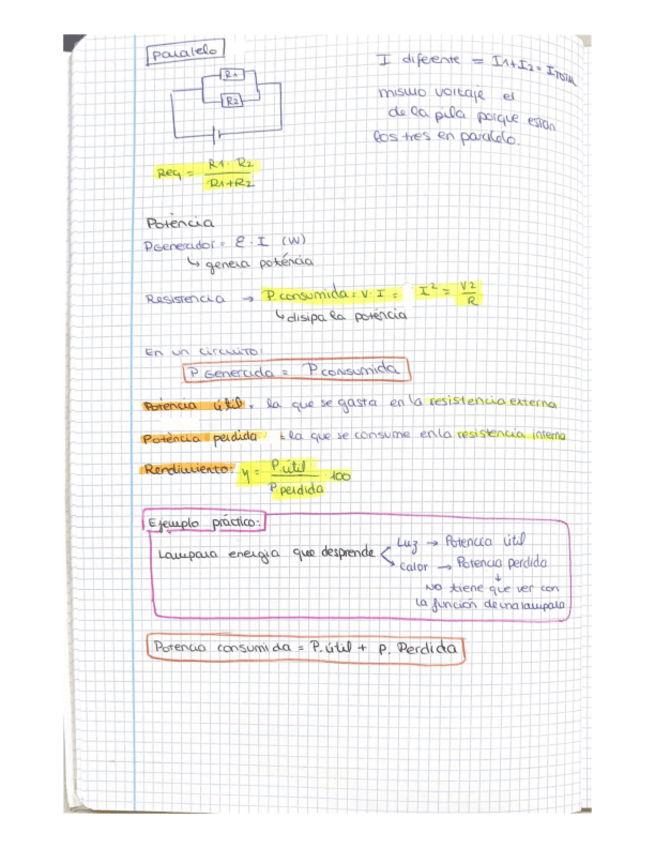 Paralelo
R1
R2
I diferente = I1+I2 = ITOTAL
mismo voltaje el
de la pila porque estan
los tres en paralelo.
Req = R1 · R2 / R1+R2
Potència
PGenerador = E · I (W)
↳ genera potència
Resistencia → P.consumida = V · I = I² = V2 / R
↳ disipa la potència
En un circuito:
P Generada = P consumida
Potencia útil = la que se gasta en la resistencia externa
Potència perdida = la que se consume en la resistencia interna
Rendimiento: η = P.útil / P.perdida · 100
Ejemplo práctico:
Lampara energia que desprende
Luz → Potencia útil
Calor → Potencia perdida
↓
No tiene que ver con
la función de una lampara
Potencia consumida = P.útil + P. Perdida